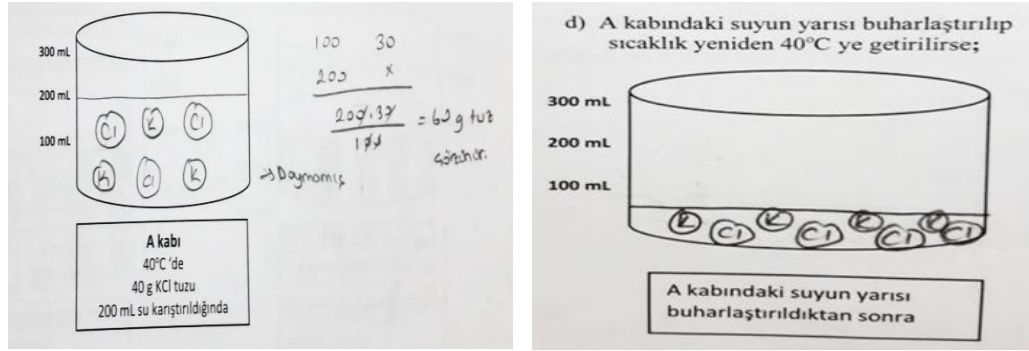 300 mL
200 mL
100 mL
Cl K Cl
K Cl K
→ Doymamış
100 30
200 x
200.30
100
= 60 g tuz
çözünür.
A kabı
40°C 'de
40 g KCl tuzu
200 mL su karıştırıldığında
d) A kabındaki suyun yarısı buharlaştırılıp
sıcaklık yeniden 40°C ye getirilirse;
300 mL
200 mL
100 mL
K Cl K Cl K Cl K Cl
A kabındaki suyun yarısı
buharlaştırıldıktan sonra